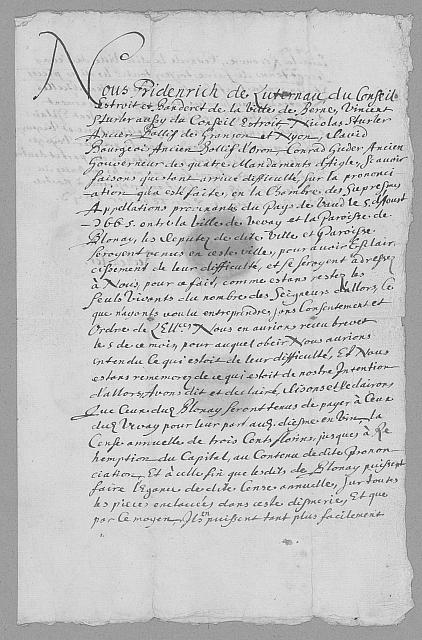 Nous Fridenrich de Luternau du Conseil
Estroit et Banderet de la Ville de Berne, Vincent
Sturler aussy du Conseil Estroit, Nicolas Sturler
Ancien Ballif de Granson et Nyon, David
Bourgeois Ancien Ballif d'Oron, Conrad Güder Ancien
Gouverneur des quatre Mandaments d'Aigle, Scavoir
faisons que stant arrivé difficulté, sur la prononci
ation qui a esté faite, en la Chambre des Supresmes
Appellations provenantes du Pays de Vaud le
1665. entre la Ville de Vevay et la Paroisse de
Blonay, les Deputez de dite Ville et Paroisse
seroyent venus en ceste ville, pour avoir Esclair
cissement de leur difficulté, et se seroyent adressez
à Nous, pour ce fait, comme estans restez les
seuls vivants du nombre des Seigneurs d'allors, Ce
que n'ayants voulu entreprendre, sans Consentement et
Ordre de L'EEces Nous en aurions receu brevet
le 5 de ce mois, pour auquel obeir Nous aurions
entendu Ce qui estoit de leur difficulté, Et Nous
estans rememorez de ce qui estoit de nostre Intention
d'allors, Avons dit et declairé, Disons et declairons
Que Ceux de Blonay seront tenus de payer à Ceux
de Vevay pour leur part au diesme en Vin, la
Cense annuelle de trois Cents florins, jusques à Re
hemption du Capital, au Contenu de dite Pronon
ciation, Et à celle fin que lesdits de Blonay puissent
faire l'Egance de dite Cense annuelle, sur toutes
les pieces enclavées dans ceste dismerie, Et que
par ce moyen, Ils en puissent tant plus facilement